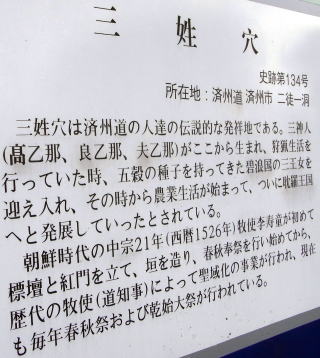 三姓穴
史跡第134号
所在地：済州道 済州市 二徒一洞
三姓穴は済州道の人達の伝説的な発祥地である。三神人
(髙乙那、良乙那、夫乙那)がここから生まれ、狩猟生活を
行っていた時、五穀の種子を持ってきた碧浪国の三王女を
迎え入れ、その時から農業生活が始まって、ついに耽羅王国
へと発展していったとされている。
朝鮮時代の中宗21年(西暦1526年)牧使李寿童が初めて
標壇と紅門を立て、垣を造り、春秋奉祭を行い始めてから、
歴代の牧使(道知事)によって聖域化の事業が行われ、現在
も毎年春秋祭および乾始大祭が行われている。